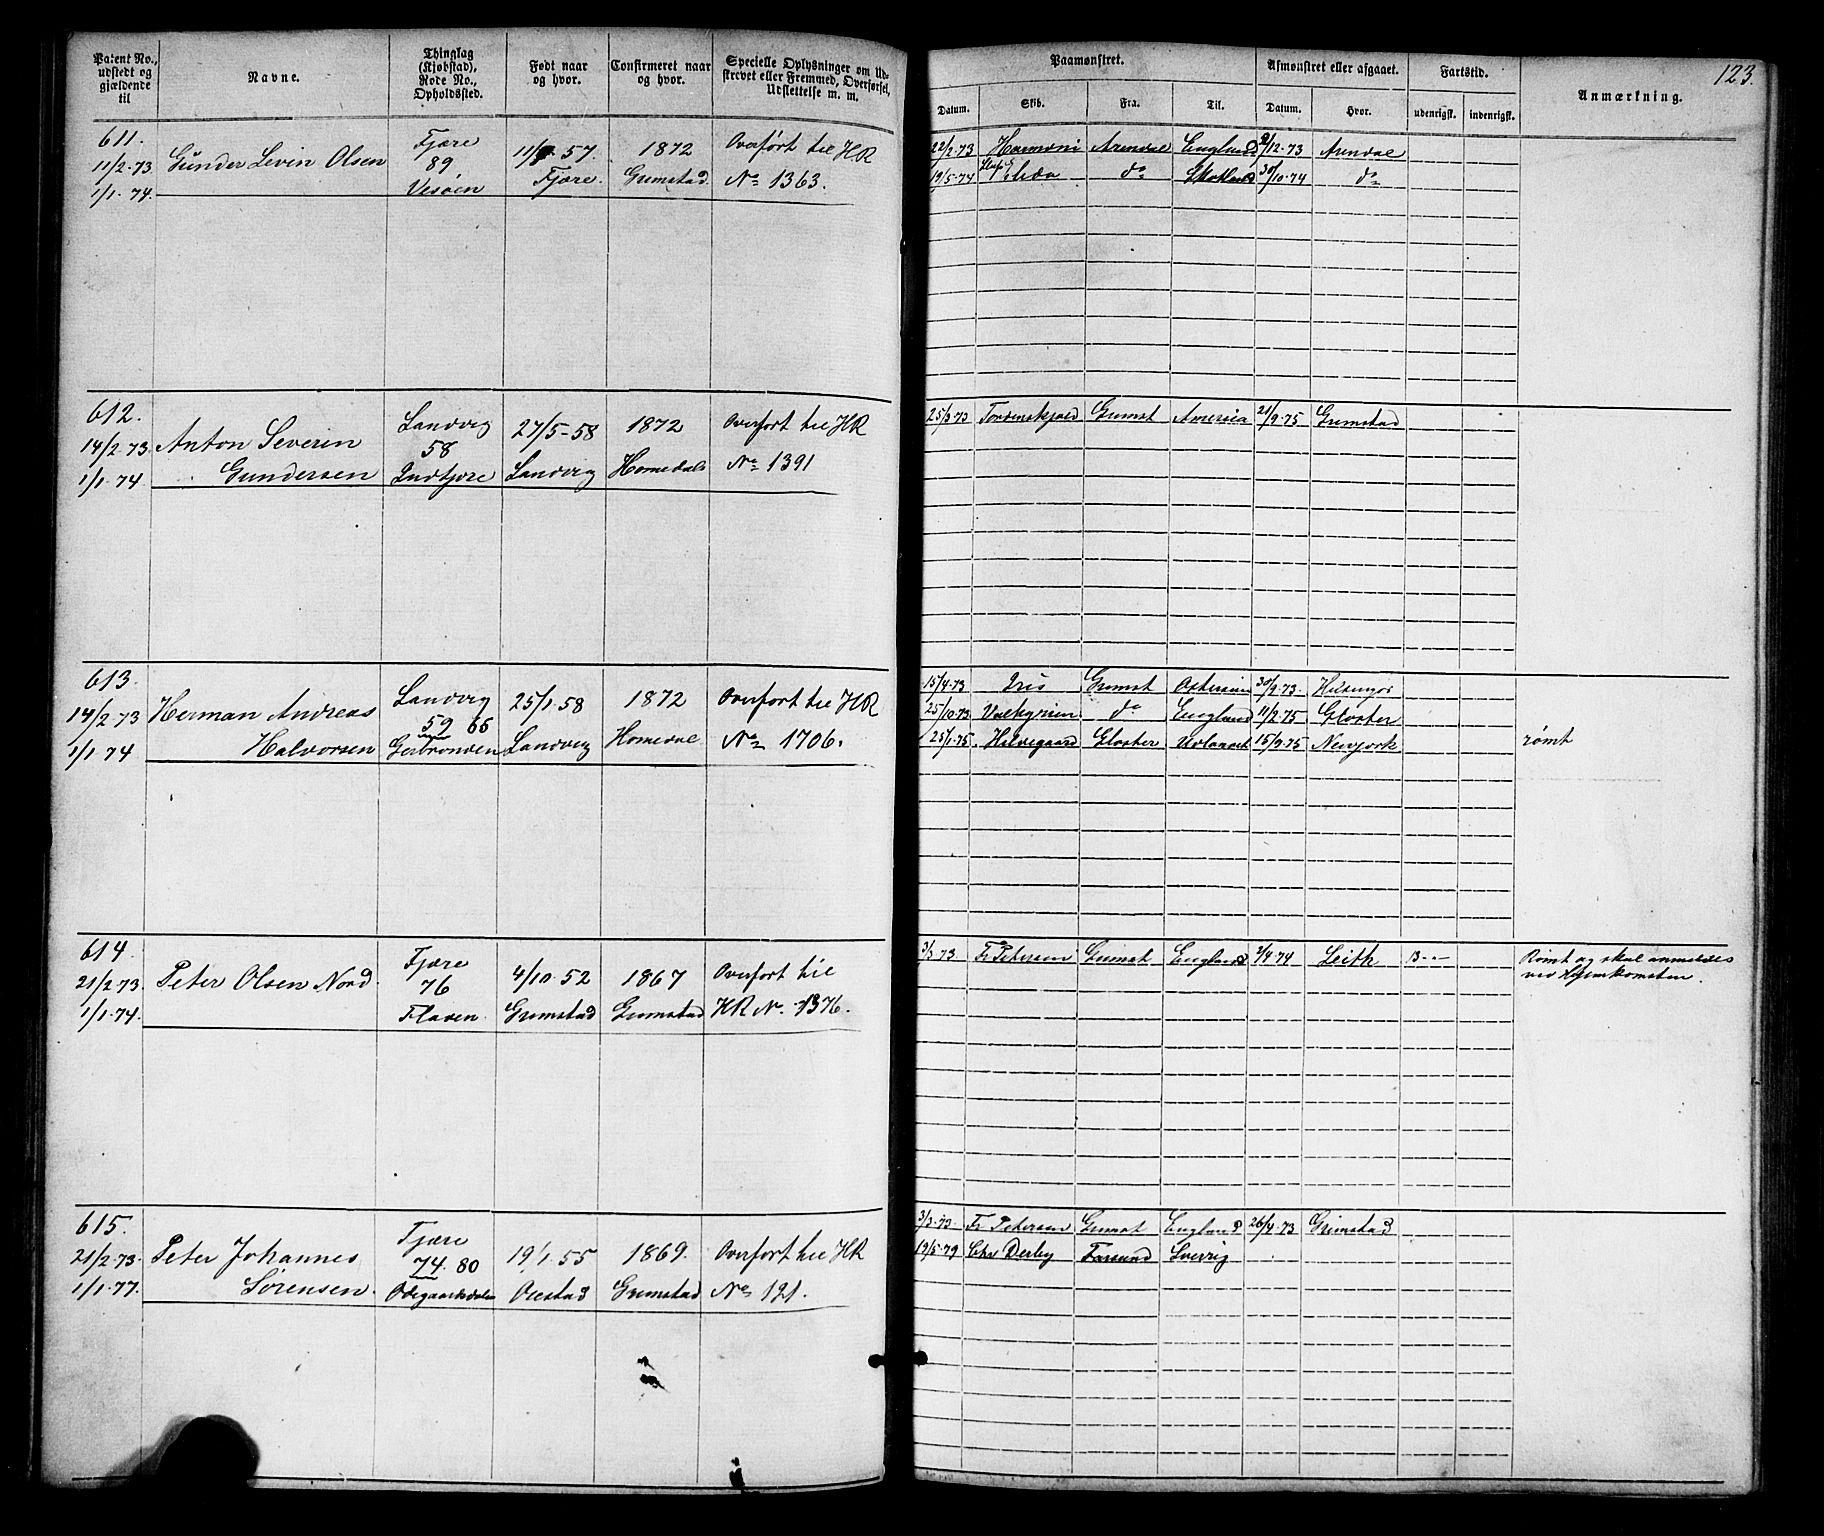 123.
Patent No., udstedt og gjældende til
Navne.
Thinglag (Kjøbstad), Rode No., Opholdssted.
Født naar og hvor.
Confirmeret naar og hvor.
Specielle Oplysninger om Udskrevet eller Fremmed, Overførsel, Udslettelse m. m.
Paamønstret.
Afmønstret eller afgaaet.
Fartstid.
Anmærkning.
Datum. Skib. Fra. Til. Datum. Hvor. udenrigsk. indenrigsk.
611. Fjære 11/9 57. 1872 Overført til HR
11/2-73 Gunder Levin Olsen 89 Fjære. Grimstad No 1363.
1/1-74. Vesøen
22/2-73 Harmoni Arendal England 9/12-73 Arendal
19/5-74 Elida do Skotland 30/10-74 do
612. Landvig 27/5-58 1872 Overført til HR
14/2-73 Anton Severin 58
1/1-74 Gundersen Indtjore Landvig Homedal No 1391
25/3-73 Tordenskjold Grimst America 21/9-75 Grimstad
613. Landvig 25/1-58 1872 Overført til HR
14/2-73 Herman Andreas 59 66
1/1-74 Halvorsen Landvig Homedal No 1706.
15/4-73 Iris Grimst Østersøen 30/9-73. Helsingør
25/10-73 Valkyrien do England 11/2-75 Gloster
25/1-75. Gloster 15/9-75 Newjork rømt
614. Fjære 4/10-52 1867 Overført til
21/2-73 Peter Olsen Nord 76
1/1-74. Flaven Grimstad Grimstad HR No. 1376.
3/3-73 Fr Petersen Grimst England 2/4-74 Leith 13 - - Rømt og skal anmeldes
ved Hjemkomsten.
615. Fjære 19/1-55 1869. Overført til HR
21/2-73. Peter Johannes 74. 80
1/1-77. Sørensen. Odegaardsdalen Oiestad Grimstad No 121.
3/3-73. Fr Petersen Grimst England 26/4-73 Grimstad
19/5-79 Chr Derby Farsund Sverrig